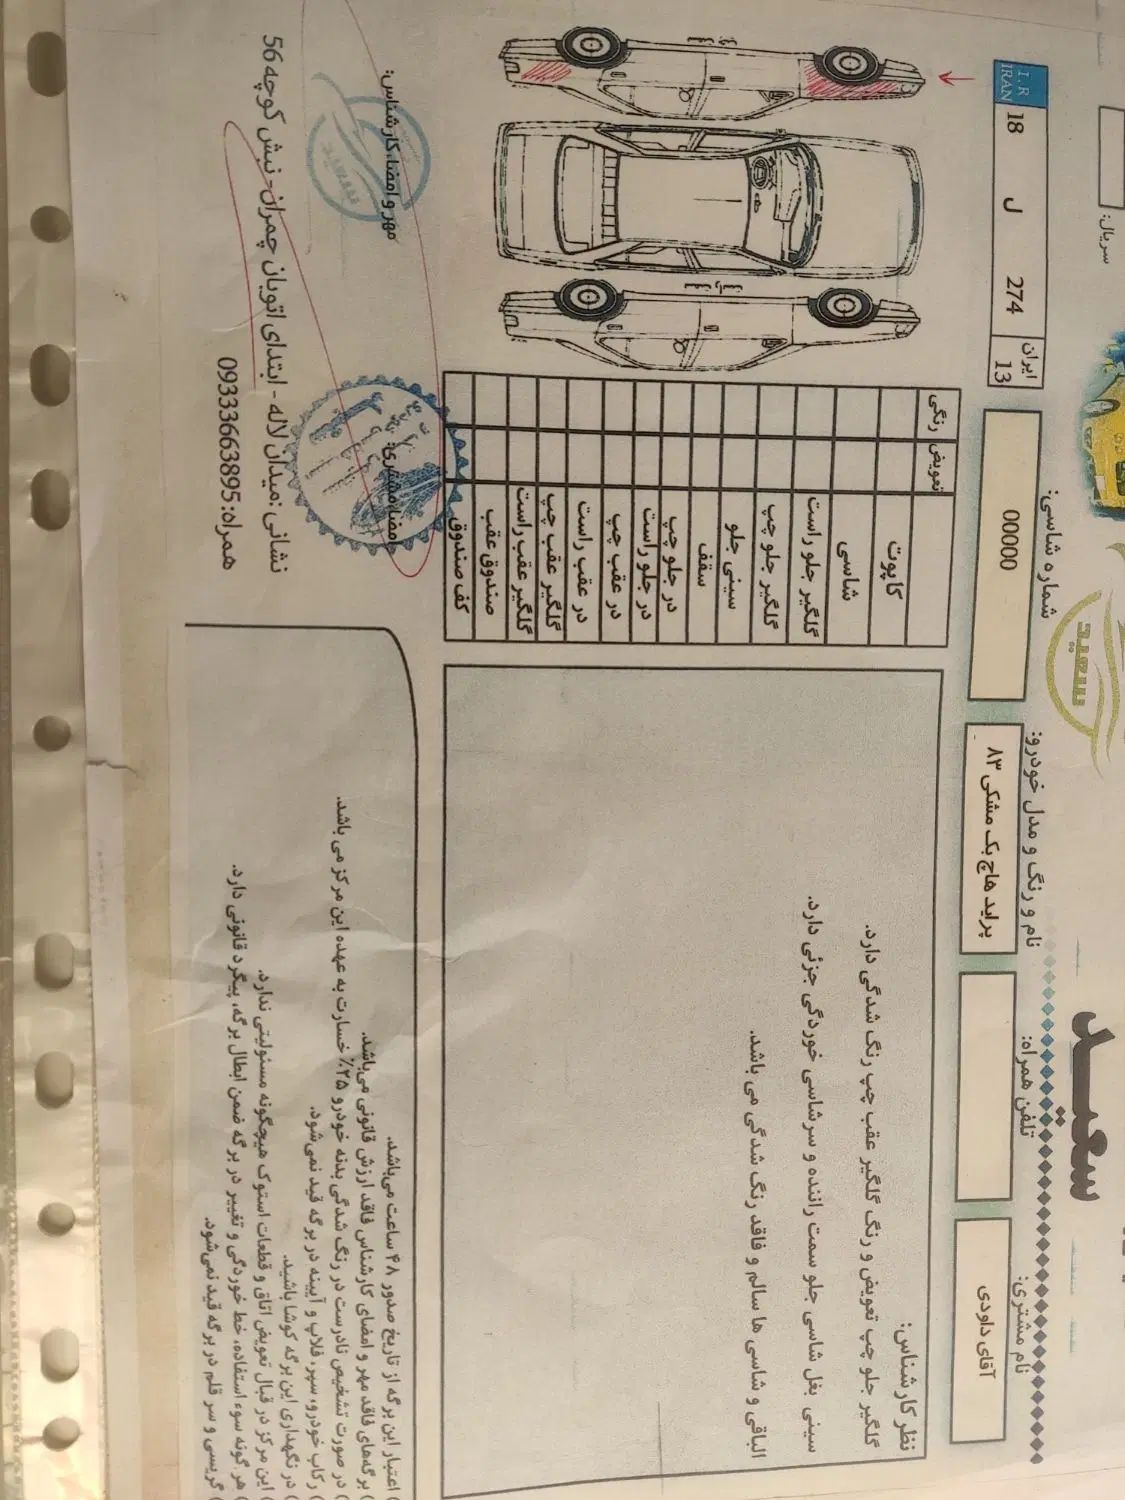 سعید
سریال:
نام مشتری:
آقای داودی
تلفن همراه:
نام و رنگ و مدل خودرو:
پراید هاچ بک مشکی ۸۳
سعید
شماره شاسی:
00000
I.R
IRAN
18 ل 274
ایران
13
نظر کارشناس:
گلگیر جلو چپ تعویض و رنگ گلگیر عقب چپ رنگ شدگی دارد.
سینی بغل شاسی جلو سمت راننده و سرشاسی خوردگی جزئی دارد.
الباقی و شاسی ها سالم و فاقد رنگ شدگی می باشد.
تعویض رنگی
کاپوت
شاسی
گلگیر جلو راست
گلگیر جلو چپ
سینی جلو
سقف
در جلو چپ
در جلو راست
در عقب چپ
در عقب راست
گلگیر عقب چپ
گلگیر عقب راست
صندوق عقب
کف صندوق
اعتبار این برگه از تاریخ صدور ۴۸ ساعت می‌باشد.
برگه‌های فاقد مهر و امضای کارشناس فاقد ارزش قانونی می‌باشد.
در صورت تشخیص نادرست در رنگ شدگی بدنه خودرو ۲۵٪ خسارت به عهده این مرکز می باشد.
رکاب خودرو، سپر، قلاب و آیینه در برگه قید نمی‌شود.
در نگهداری این برگه کوشا باشید.
این مرکز در قبال تعویض اتاق و قطعات استوک هیچگونه مسئولیتی ندارد.
هر گونه سوء استفاده، خط خوردگی و تغییر در برگه ضمن ابطال برگه، پیگرد قانونی دارد.
گریسی و سر قلم در برگه قید نمی‌شود.
امضاء مشتری:
مهر و امضاء کارشناس:
سعید
نشانی :میدان لاله - ابتدای اتوبان چمران- نبش کوچه 56
همراه:09333663895